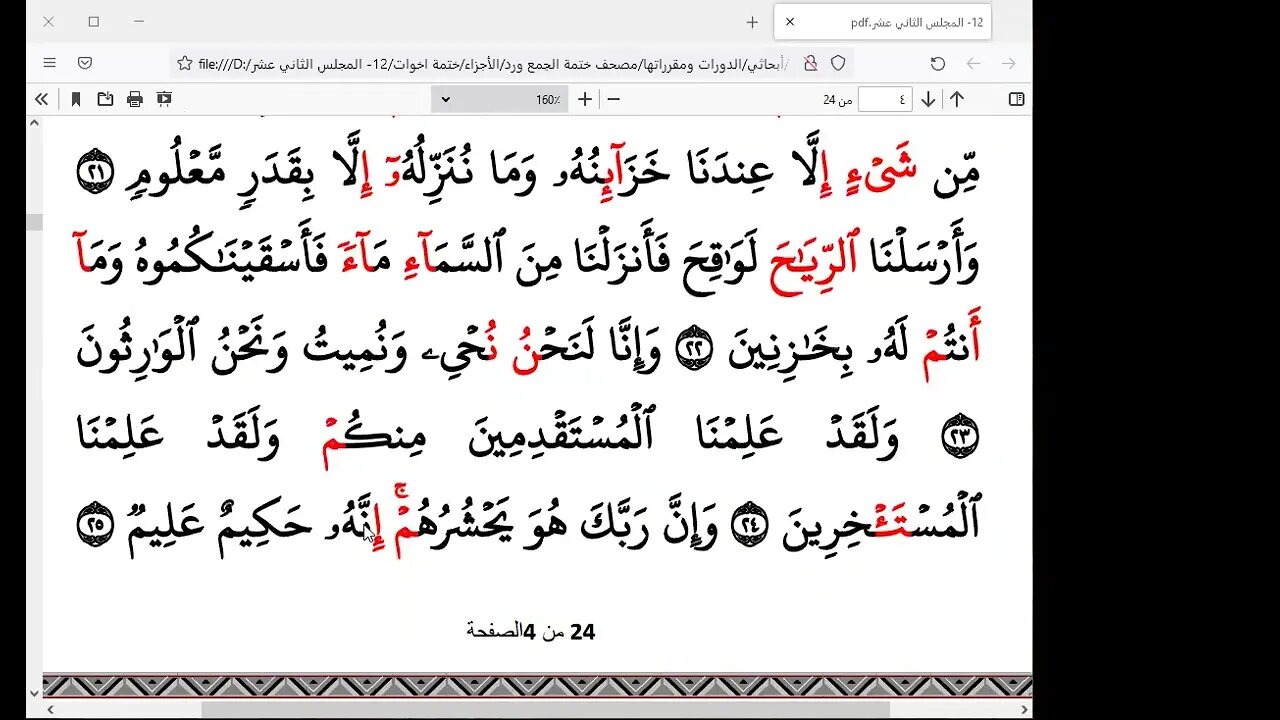 12- المجلس الثاني عشر.pdf
file:///D:/أبحاثي/الدورات ومقرراتها/مصحف ختمة الجمع ورد/الأجزاء/ختمة اخوات/12- المجلس الثاني عشر
٤ من 24 160٪
مِّن شَىْءٍ إِلَّا عِندَنَا خَزَآئِنُهُۥ وَمَا نُنَزِّلُهُۥٓ إِلَّا بِقَدَرٍۢ مَّعْلُومٍۢ ٢١
وَأَرْسَلْنَا ٱلرِّيَـٰحَ لَوَٰقِحَ فَأَنزَلْنَا مِنَ ٱلسَّمَآءِ مَآءًۭ فَأَسْقَيْنَـٰكُمُوهُ وَمَآ
أَنتُمْ لَهُۥ بِخَـٰزِنِينَ ٢٢ وَإِنَّا لَنَحْنُ نُحْىِۦ وَنُمِيتُ وَنَحْنُ ٱلْوَٰرِثُونَ
٢٣ وَلَقَدْ عَلِمْنَا ٱلْمُسْتَقْدِمِينَ مِنكُمْ وَلَقَدْ عَلِمْنَا
ٱلْمُسْتَـْٔخِرِينَ ٢٤ وَإِنَّ رَبَّكَ هُوَ يَحْشُرُهُمْ ۚ إِنَّهُۥ حَكِيمٌ عَلِيمٌۭ ٢٥
24 من 4الصفحة